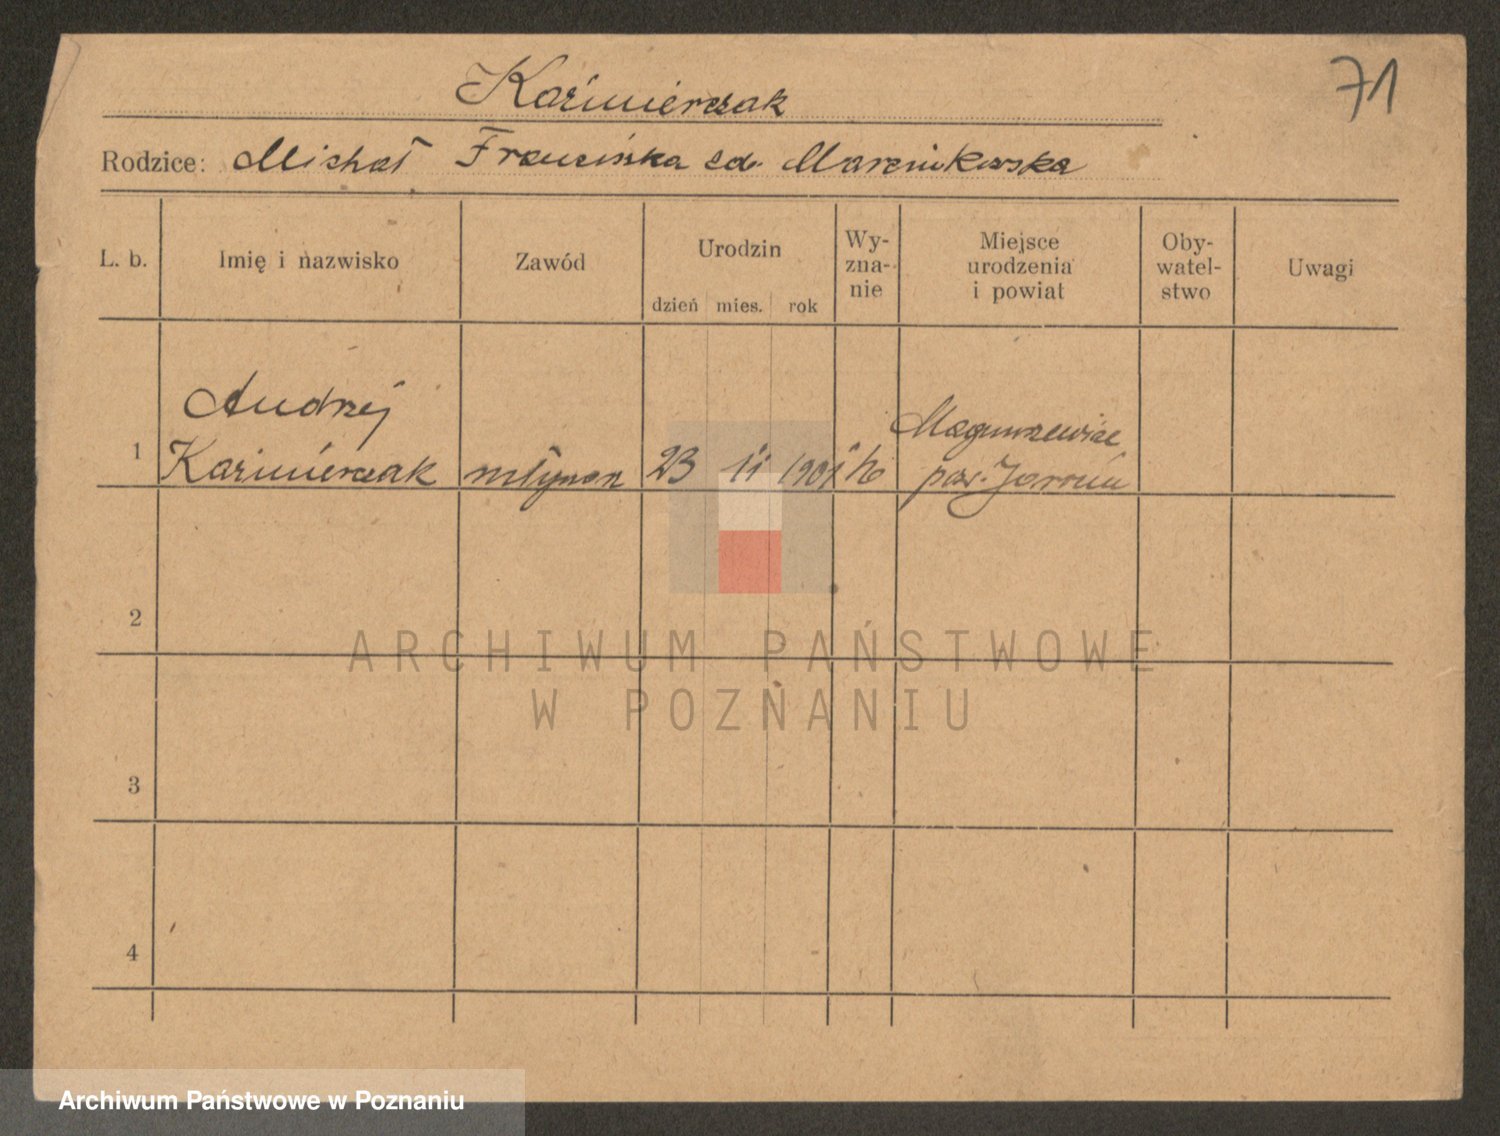 Kaźmierczak
71
Rodzice: Michał Franciszka zd. Marcinkowska
L. b.
Imię i nazwisko
Zawód
Urodzin
dzień mies. rok
Wy-
zna-
nie
Miejsce
urodzenia
i powiat
Oby-
watel-
stwo
Uwagi
1
Andrzej
Kaźmierczak
młynarz
23 11 1901
Magnuszewice
pow. Jarocin
2
3
4
ARCHIWUM PAŃSTWOWE
W POZNANIU
Archiwum Państwowe w Poznaniu